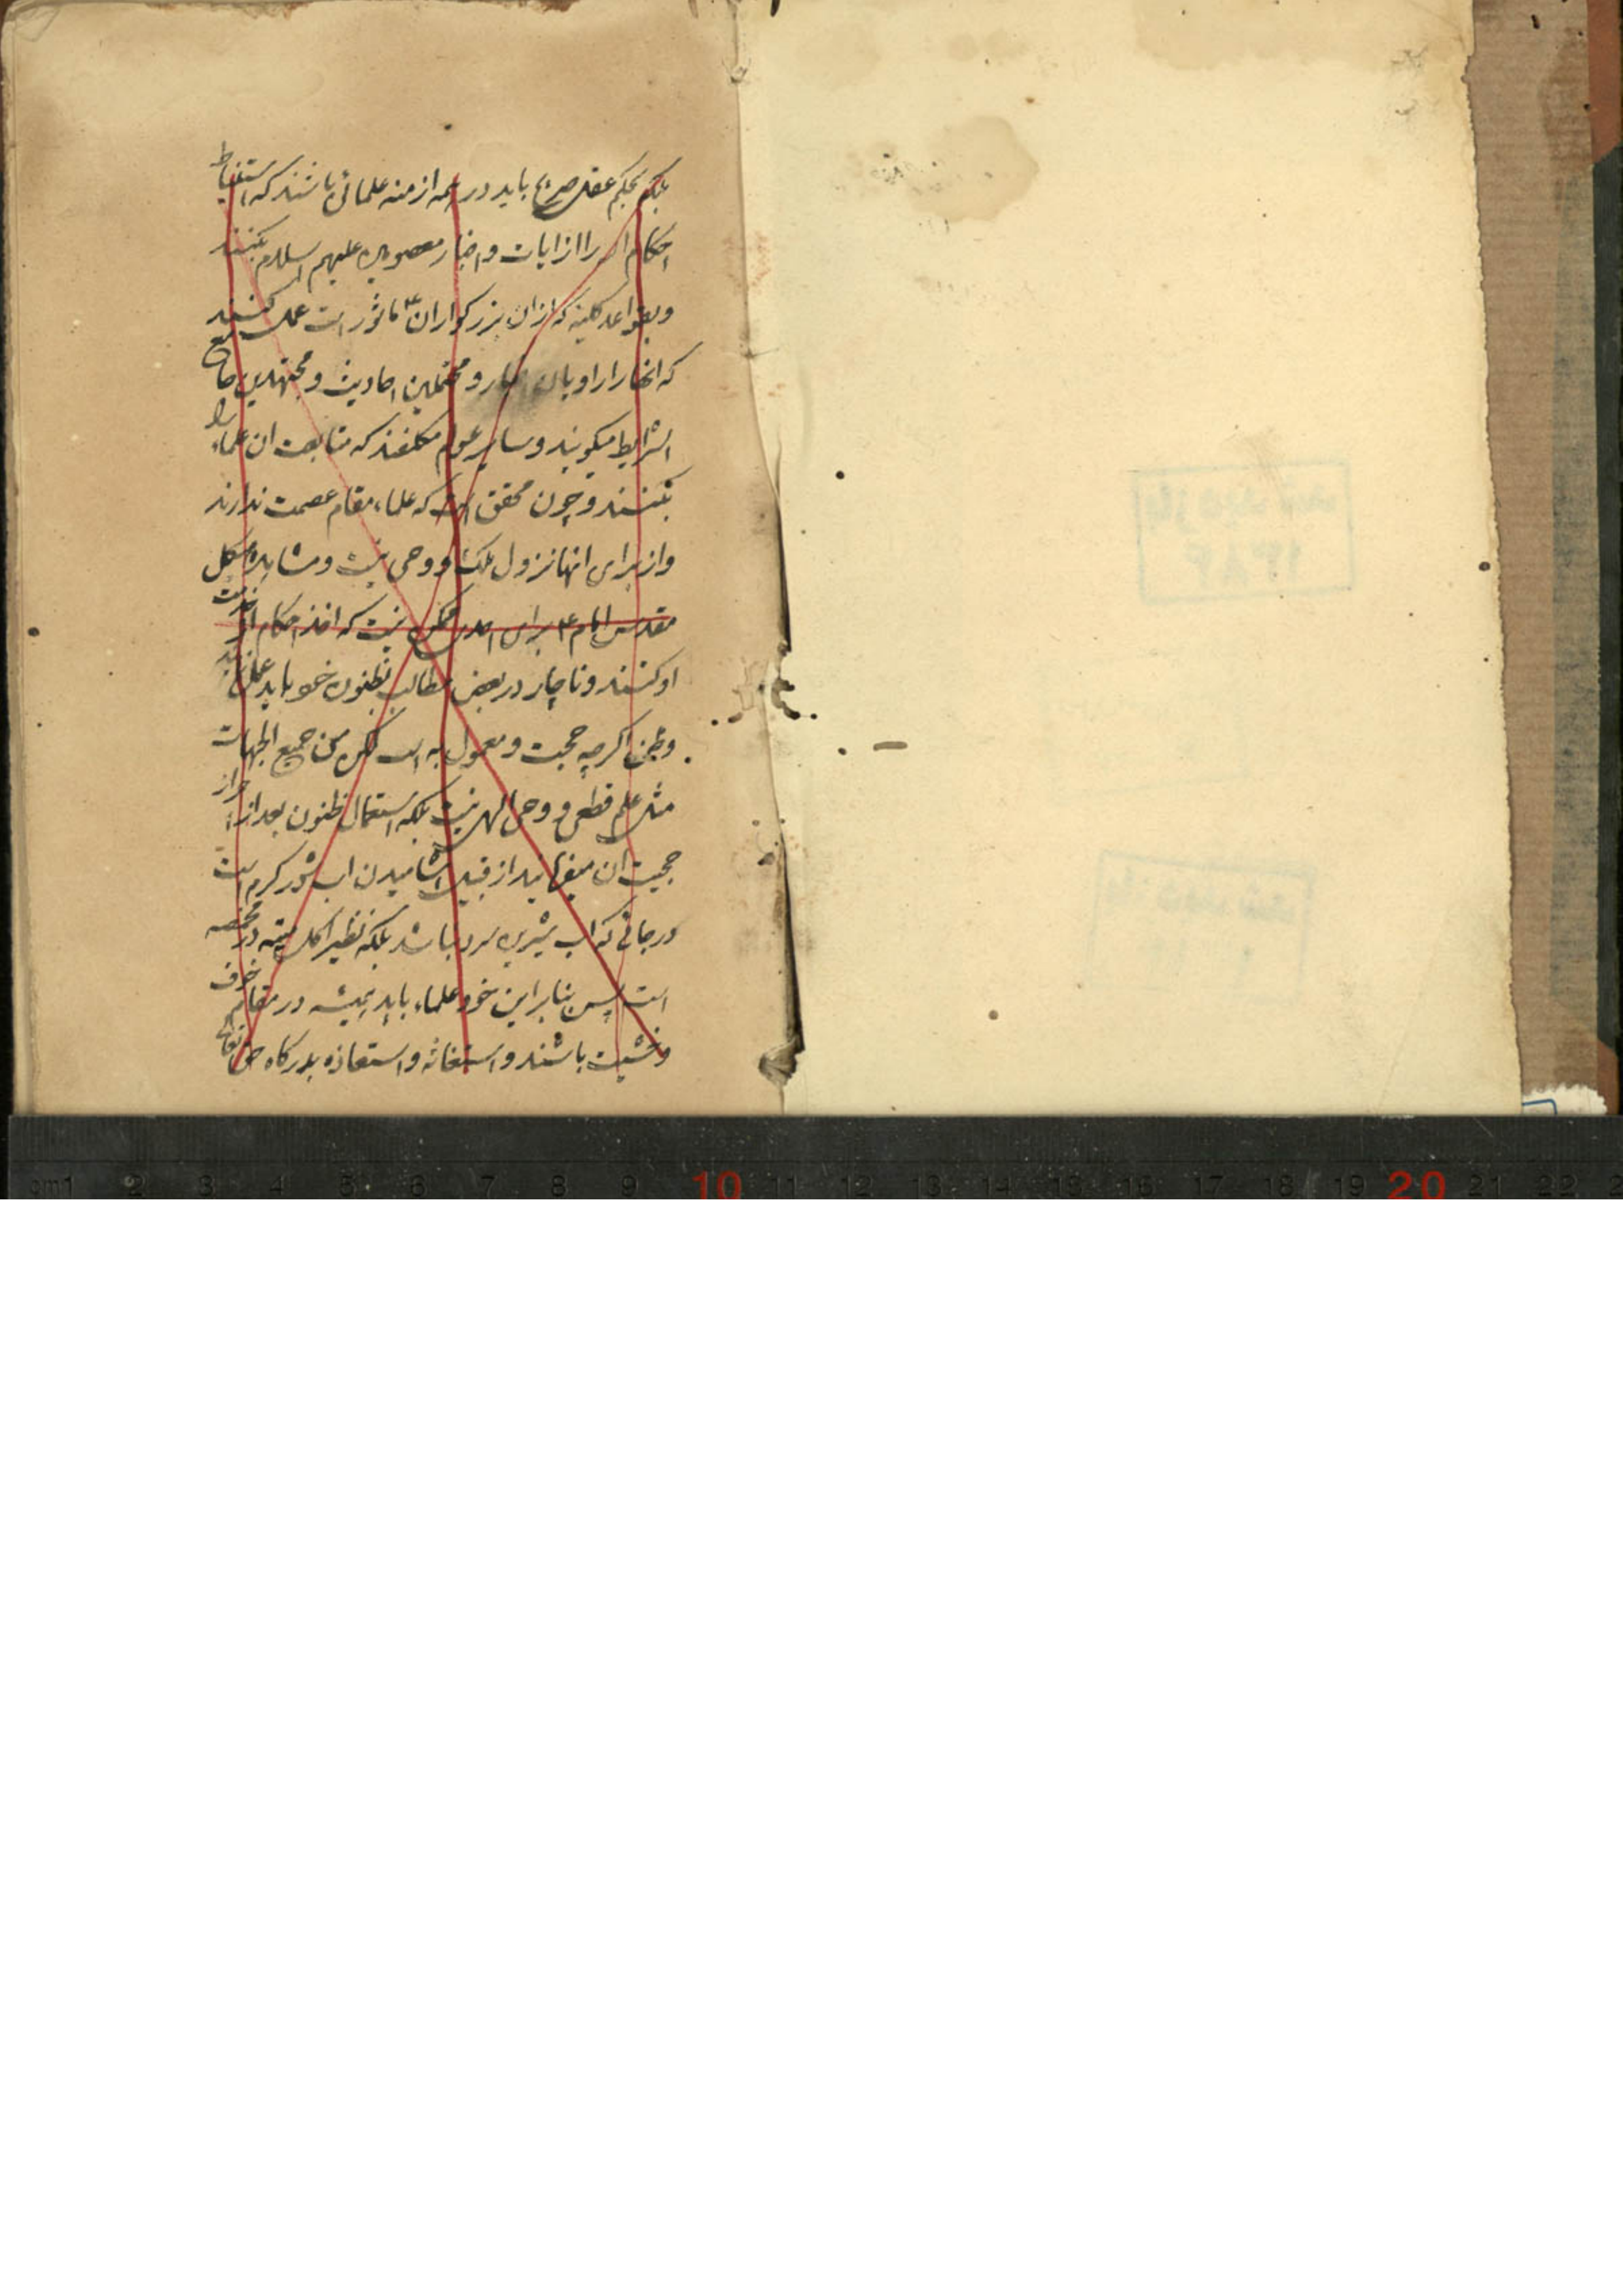 بلکه بحکم عقل صریح باید در همه ازمنه علمائی باشند که استنباط
احکام را از ایات و اخبار معصومین علیهم السلام بکنند
و بقواعد کلیه که از ان بزرکواران ع ماثور است عمل کنند
که انها را راویان اخبار و محتملین احادیث و مجتهدین جامع
الشرایط میکویند و سایر عوام مکلفند که متابعت ان علماء را
بکنند و چون محقق است که علماء مقام عصمت ندارند
و از برای انها نزول ملک و وحی نیست و مشاهده هیکل
مقدس امام ع برای احدی ممکن نیست که اخذ احکام از خدمت
او کنند و ناچار در بعض مطالب بظنون خود باید عمل نمایند
و ظن اکرچه حجت و معمول به است لکن من جمیع الجهات
مثل علم قطعی و وحی الهی نیست بلکه استعمال ظنون بعد از احراز
حجیت ان از قبیل اشامیدن اب شور کرم است
در جائی که اب شیرین سرد نباشد بلکه نظیر اکل میته در مخمصه
است پس بنابراین خود علماء باید همیشه در مقام خوف
و خشیت باشند و استغاثه و استعاذه بدرکاه حق تعالی
cm1 2 3 4 5 6 7 8 9 10 11 12 13 14 15 16 17 18 19 20 21 22